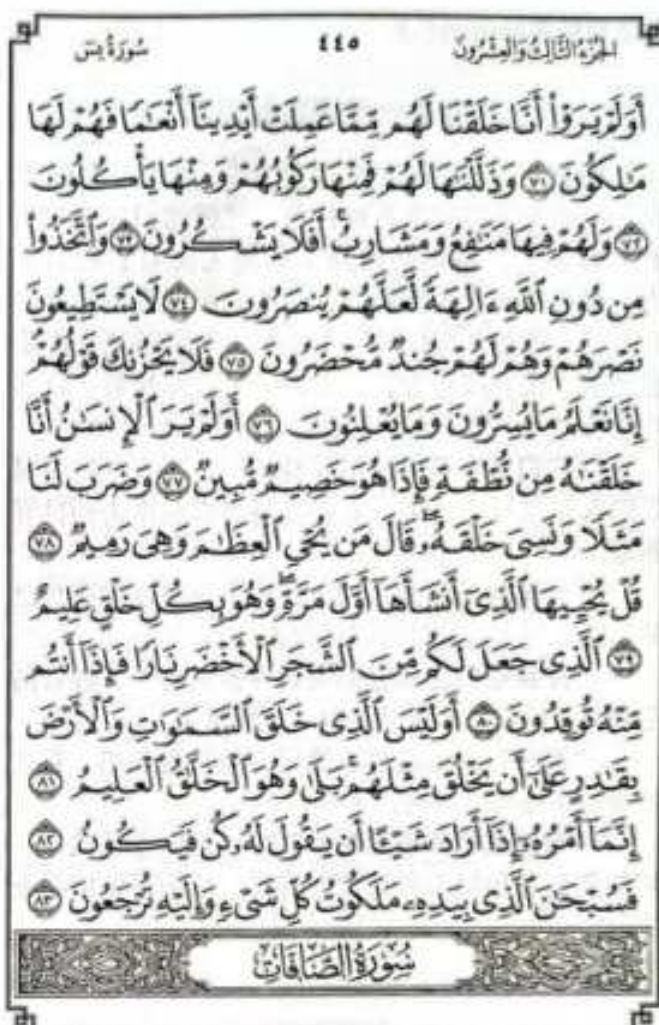 الجزء الثالث والعشرون ٤٤٥ سورة يس
أَوَلَمْ يَرَوْا۟ أَنَّا خَلَقْنَا لَهُم مِّمَّا عَمِلَتْ أَيْدِينَآ أَنْعَٰمًا فَهُمْ لَهَا
مَٰلِكُونَ ٧١ وَذَلَّلْنَٰهَا لَهُمْ فَمِنْهَا رَكُوبُهُمْ وَمِنْهَا يَأْكُلُونَ
٧٢ وَلَهُمْ فِيهَا مَنَٰفِعُ وَمَشَارِبُ ۚ أَفَلَا يَشْكُرُونَ ٧٣ وَٱتَّخَذُوا۟
مِن دُونِ ٱللَّهِ ءَالِهَةً لَّعَلَّهُمْ يُنصَرُونَ ٧٤ لَا يَسْتَطِيعُونَ
نَصْرَهُمْ وَهُمْ لَهُمْ جُندٌ مُّحْضَرُونَ ٧٥ فَلَا يَحْزُنكَ قَوْلُهُمْ ۘ
إِنَّا نَعْلَمُ مَا يُسِرُّونَ وَمَا يُعْلِنُونَ ٧٦ أَوَلَمْ يَرَ ٱلْإِنسَٰنُ أَنَّا
خَلَقْنَٰهُ مِن نُّطْفَةٍ فَإِذَا هُوَ خَصِيمٌ مُّبِينٌ ٧٧ وَضَرَبَ لَنَا
مَثَلًا وَنَسِىَ خَلْقَهُۥ ۖ قَالَ مَن يُحْىِ ٱلْعِظَٰمَ وَهِىَ رَمِيمٌ ٧٨
قُلْ يُحْيِيهَا ٱلَّذِىٓ أَنشَأَهَآ أَوَّلَ مَرَّةٍ ۖ وَهُوَ بِكُلِّ خَلْقٍ عَلِيمٌ
٧٩ ٱلَّذِى جَعَلَ لَكُم مِّنَ ٱلشَّجَرِ ٱلْأَخْضَرِ نَارًا فَإِذَآ أَنتُم
مِّنْهُ تُوقِدُونَ ٨٠ أَوَلَيْسَ ٱلَّذِى خَلَقَ ٱلسَّمَٰوَٰتِ وَٱلْأَرْضَ
بِقَٰدِرٍ عَلَىٰٓ أَن يَخْلُقَ مِثْلَهُم ۚ بَلَىٰ وَهُوَ ٱلْخَلَّٰقُ ٱلْعَلِيمُ ٨١
إِنَّمَآ أَمْرُهُۥٓ إِذَآ أَرَادَ شَيْـًٔا أَن يَقُولَ لَهُۥ كُن فَيَكُونُ ٨٢
فَسُبْحَٰنَ ٱلَّذِى بِيَدِهِۦ مَلَكُوتُ كُلِّ شَىْءٍ وَإِلَيْهِ تُرْجَعُونَ ٨٣
سُورَةُ الصَّافَّاتِ